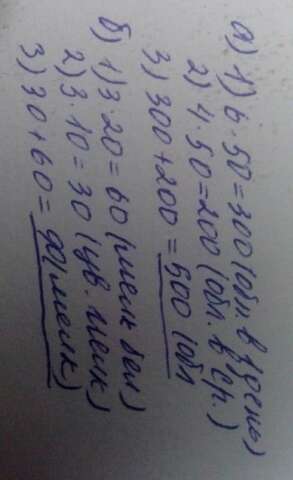 а) 1) 6·50=300 (обл. в 1 день)
2) 4·50=200 (обл. в ср.)
3) 300+200=500 (обл
б) 1) 3·20=60 (мелк бел)
2) 3·10=30 (цв. мелк)
3) 30+60=90 (мелк)